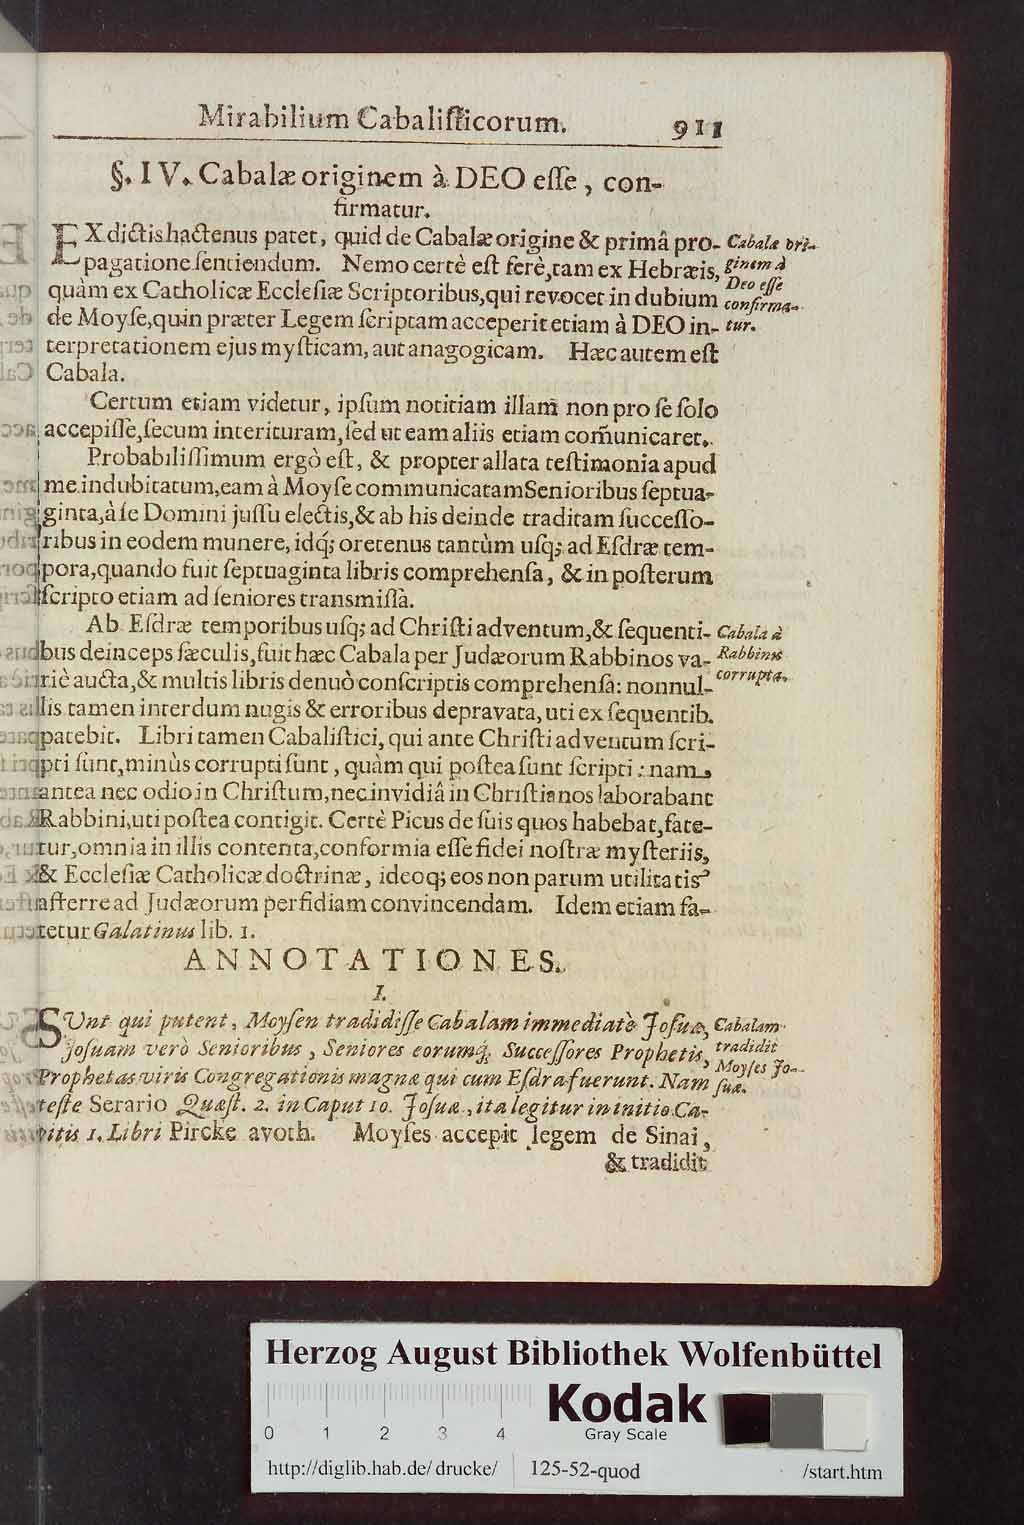 Mirabilium Cabalisticorum. 911
§. IV. Cabalæ originem à DEO esse, con-
firmatur.
EX dictis hactenus patet, quid de Cabalæ origine & primâ pro-
pagatione sentiendum. Nemo certè est ferè, tam ex Hebræis,
quàm ex Catholicæ Ecclesiæ Scriptoribus, qui revocet in dubium
de Moyse, quin præter Legem scriptam acceperit etiam à DEO in-
terpretationem ejus mysticam, aut anagogicam. Hæc autem est
Cabala.
Cabalæ ori-
ginem à
Deo esse
confirma-
tur.
Certum etiam videtur, ipsum notitiam illam non pro se solo
accepisse, secum interituram, sed ut eam aliis etiam com̃unicaret.
Probabilissimum ergò est, & propter allata testimonia apud
me indubitatum, eam à Moyse communicatam Senioribus septua-
ginta, à se Domini jussu electis, & ab his deinde traditam successo-
ribus in eodem munere, idq́; oretenus tantùm usq; ad Esdræ tem-
pora, quando fuit septuaginta libris comprehensa, & in posterum
scripto etiam ad seniores transmissa.
Ab Esdræ temporibus usq; ad Christi adventum, & sequenti-
bus deinceps sæculis, fuit hæc Cabala per Judæorum Rabbinos va-
riè aucta, & multis libris denuò conscriptis comprehensa: nonnul-
lis tamen interdum nugis & erroribus depravata, uti ex sequentib.
patebit. Libri tamen Cabalistici, qui ante Christi adventum scri-
pti sunt, minùs corrupti sunt, quàm qui postea sunt scripti: nam
antea nec odio in Christum, nec invidiâ in Christianos laborabant
Rabbini, uti postea contigit. Certè Picus de suis quos habebat, fate-
tur, omnia in illis contenta, conformia esse fidei nostræ mysteriis,
& Ecclesiæ Catholicæ doctrinæ, ideoq; eos non parum utilitatis
afferre ad Judæorum perfidiam convincendam. Idem etiam fa-
tetur Galatinus lib. 1.
Cabala à
Rabbinis
corrupta.
ANNOTATIONES.
I.
SUnt qui putent, Moysen tradidisse Cabalam immediatè Josuæ,
Josuam verò Senioribus, Seniores eorumq́; Successores Prophetis,
Prophetas viris Congregationis magnæ qui cum Esdra fuerunt. Nam
teste Serario Quæst. 2. in Caput 10. Josuæ, ita legitur in initio Ca-
pitis 1. Libri Pircke avoth. Moyses accepit legem de Sinai,
& tradidit
Cabalam
tradidit
Moyses Jo-
suæ.
Herzog August Bibliothek Wolfenbüttel
0 1 2 3 4
Kodak
Gray Scale
http://diglib.hab.de/drucke/ 125-52-quod /start.htm